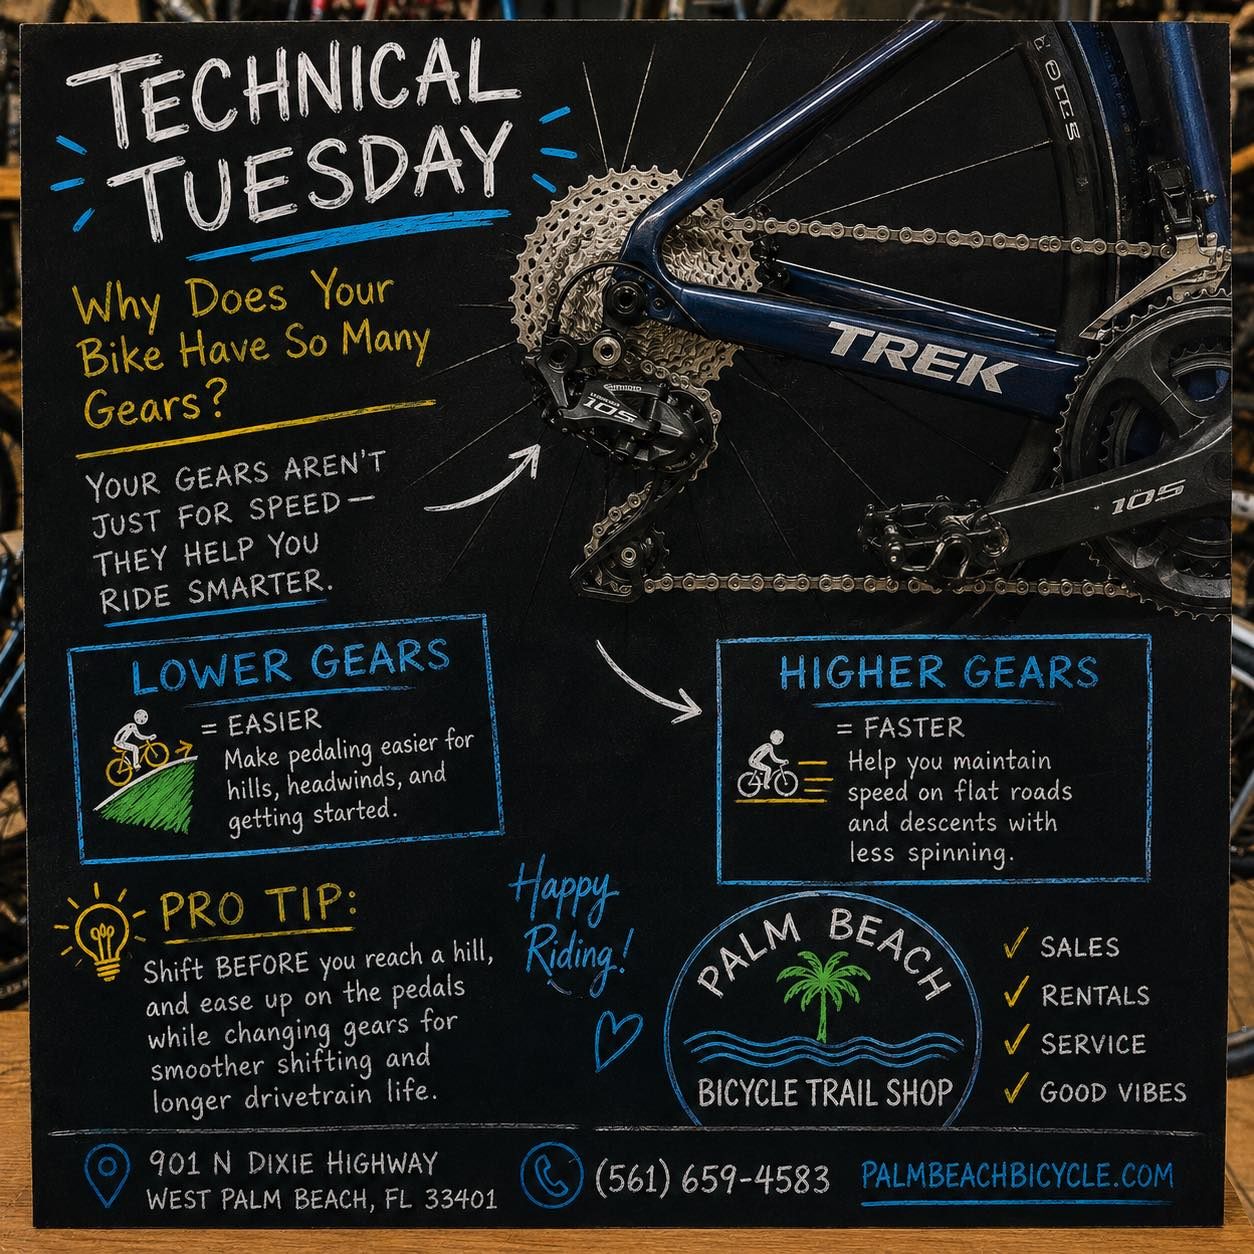 TECHNICAL
TUESDAY
Why Does Your
Bike Have So Many
Gears?
YOUR GEARS AREN'T
JUST FOR SPEED—
THEY HELP YOU
RIDE SMARTER.
TREK
SHIMANO
105
105
LOWER GEARS
= EASIER
Make pedaling easier for
hills, headwinds, and
getting started.
HIGHER GEARS
= FASTER
Help you maintain
speed on flat roads
and descents with
less spinning.
PRO TIP:
Shift BEFORE you reach a hill,
and ease up on the pedals
while changing gears for
smoother shifting and
longer drivetrain life.
Happy
Riding!
PALM BEACH
BICYCLE TRAIL SHOP
✓ SALES
✓ RENTALS
✓ SERVICE
✓ GOOD VIBES
901 N DIXIE HIGHWAY
WEST PALM BEACH, FL 33401
(561) 659-4583
PALMBEACHBICYCLE.COM